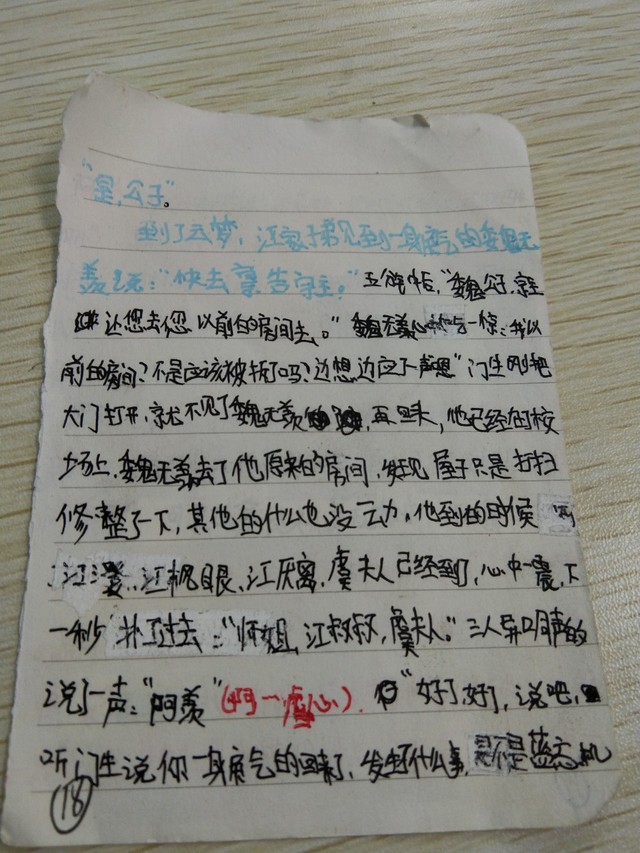 “是,公子”。
到了云梦,江家子弟见到一身戾气的魏无
羡说:“快去禀告宗主。”五饷后,“魏公子,宗主
让您去您以前的房间去。”魏无羡心中一惊:我以
前的房间?不是应该被拆了吗?边想边应了声“恩”门生刚把
大门打开,就不见了魏无羡,再回味,他已经在校
场上,魏无羡去了他原来的房间,发现屋子只是打扫
修整了一下,其他的什么也没云力,他到的时候
江澄、江枫眼、江厌离、虞夫人已经到了,心中一震,下
一秒扑了过去:“师姐,江叔叔,虞夫人。”三人异口同声的
说了一声:“阿羡”(啊一虐心)“好了,好了,说吧,
听门生说你一身戾气的回来了,发生了什么事,是不是蓝忘机
18